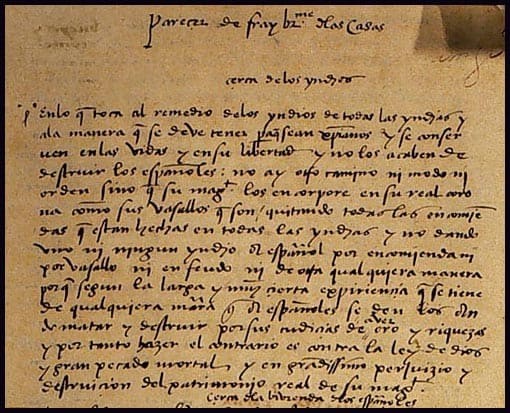 Parecer de fray br.me de las Casas
cerca de los yndios
p.o En lo q̃ toca al remedio de los yndios de todas las yndias y
a la manera q̃ se deve tener pa q̃ sean xp̃ianos y se conser
ven en las vidas y en su libertad y no los acaben de
destruir los españoles: no ay otro camino ni modo ni
orden sino q̃ su mag.t los encorpore en su real coro
na como sus vasallos que son, quitando todas las encomiẽ
das que estan hechas en todas las yndias y no dando
uno ni ningun yndio a español por encomienda ni
por vasallo ni en feudo ni de otra qualquiera manera
porq̃ segun la larga y muy cierta expiriencia que se tiene
de qualquiera mar̃a q̃ a españoles se den los an
de matar y destruir por sus cudicias de aver oro y riquezas
y por tanto hazer el contrario es contra la ley de dios
y gran pecado mortal, y en grandissimo perjuizio y
destruicion del patrimonio real de su mag.t
cerca de la bivienda de los españoles